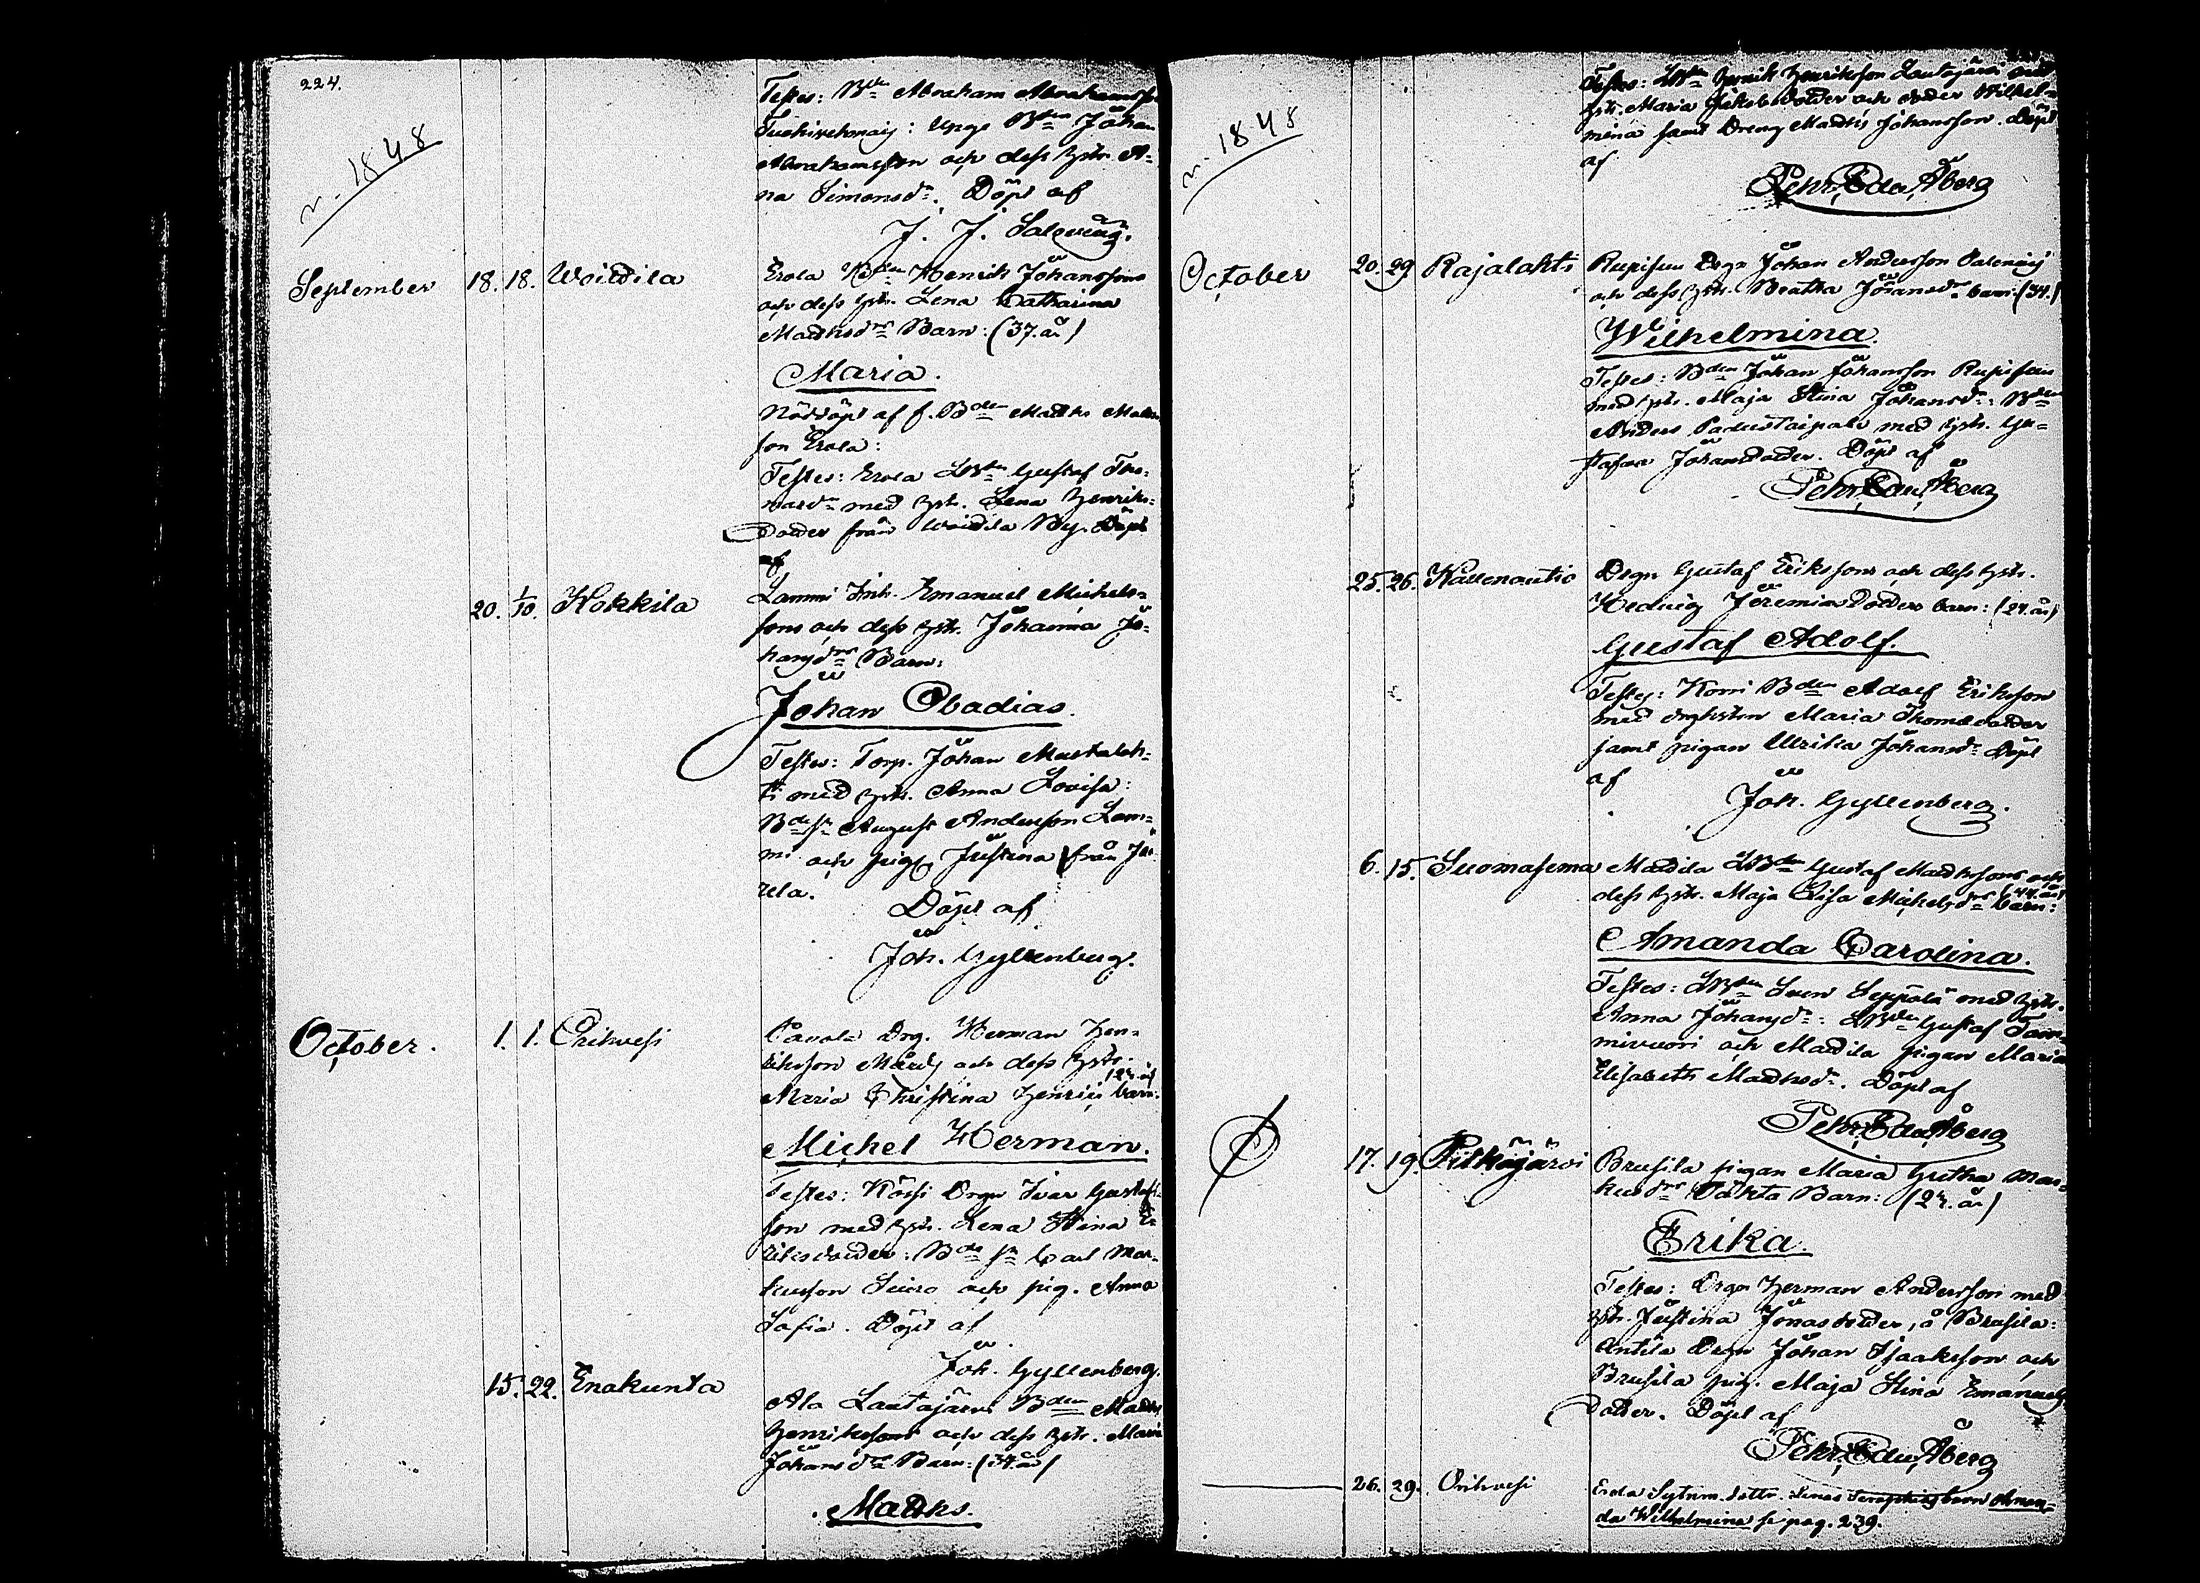 224.
n. 1848
Testes: Bdn Abraham Abrahamsson
: unge Bden Johan
Abrahamsson och dess hstr. An=
na Simonsdr. Döpt af
J. J. Salovius.
September 18. 18. Woitila
Erola Bden Henrik Johanssons
och dess hstr. Lena Catharina
Mattsdrs Barn: (37. år)
Maria.
Nöddöpt af f. Bden Matts Matts
son Erola:
Testes: Erola LBdn Gustaf Tho-
masdn med hstr. Lena Henriks-
dotter från Woitila By. Döpt
af
20. 1/10. Kokkila
Lammi Inh. Emanuel Michels-
sons och dess hstr. Johanna Jo-
hansdrs Barn:
Johan Obadias.
Testes: Torp. Johan Mustalah-
ti med hstr. Anna Lovisa:
Bdesn August Andersson Lam-
mi och pig. Justina från Ju-
rela.
Döpt af
Joh. Gyllenberg.
October. 1. 1. Orihvesi
Pavola Drg. Herman Hen-
riksson och dess hstr.
Maria Christina Henrici barn. (27. år)
Michel Herman.
Testes: Kössi Drgn Ivar Gustafs-
son med hstr. Lena Stina E-
riksdotter: Bdesn Carl Mar-
kusson Suiro och pig. Anna
Sofia. Döpt af
Joh. Gyllenberg.
15. 22. Enokunta
Ala Lautajärvi Bden Matts
Henrikssons och dess hstr. Maria
Johansdrs Barn: (34. år)
Matts.
n. 1848
Testes: LBdn Henrik Henriksson Lautajärvi med
hstr. Maria Jakobsdotter och dotter Wilhel-
mina samt Dreng Matts Johansson. Döpt
af
Pehr Edv. Åberg
October 20. 29. Rajalahti
Rupisen Drgn Johan Andersson
och dess hstr. Beatha Johansdrs barn: (34.)
Wilhelmina.
Testes: Bden Johan Johansson Rupisen
med hstr. Maja Stina Johansdr: Bden
Anders Padustaipale med hstr. Gu-
stafva Johansdotter. Döpt af
Pehr Edv. Åberg
25. 26. Kallenautio
Drgn Gustaf Erikssons och dess hstr.
Hedvig Jeremiædotters barn: (24. år)
Gustaf Adolf.
Testes: Korri Bden Adolf Eriksson
med Maria Thomædotter
samt pigan Ulrika Johansdr. Döpt
af
Joh. Gyllenberg.
6. 15. Suomasema
Mattila LBdn Gustaf Mattssons och
dess hstr. Maja Lisa Michelsdrs barn: (44. år)
Amanda Carolina.
Testes: LBdn Sven Seppälä med hstr.
Anna Johansdr: LBdn Gustaf Tam-
mivuori och Mattila pigan Maria
Elisabeth Mattsdr. Döpt af
Pehr Edv. Åberg
17. 19. Pitkäjärvi
Brusila pigan Maria Gretha Mar-
kusdrs oäkta Barn: (27. år)
Erika.
Testes: Drgn Herman Andersson med
hstr. Justina Jonasdotter, å Brusila:
Antila Drgn Johan Isaaksson och
Brusila pig. Maja Stina Emanuels
dotter. Döpt af
Pehr Edv. Åberg
26. 29. Orihvesi
Erola Sytnm. dottr. Lenas barn Aman-
da Wilhelmina se pag. 239.